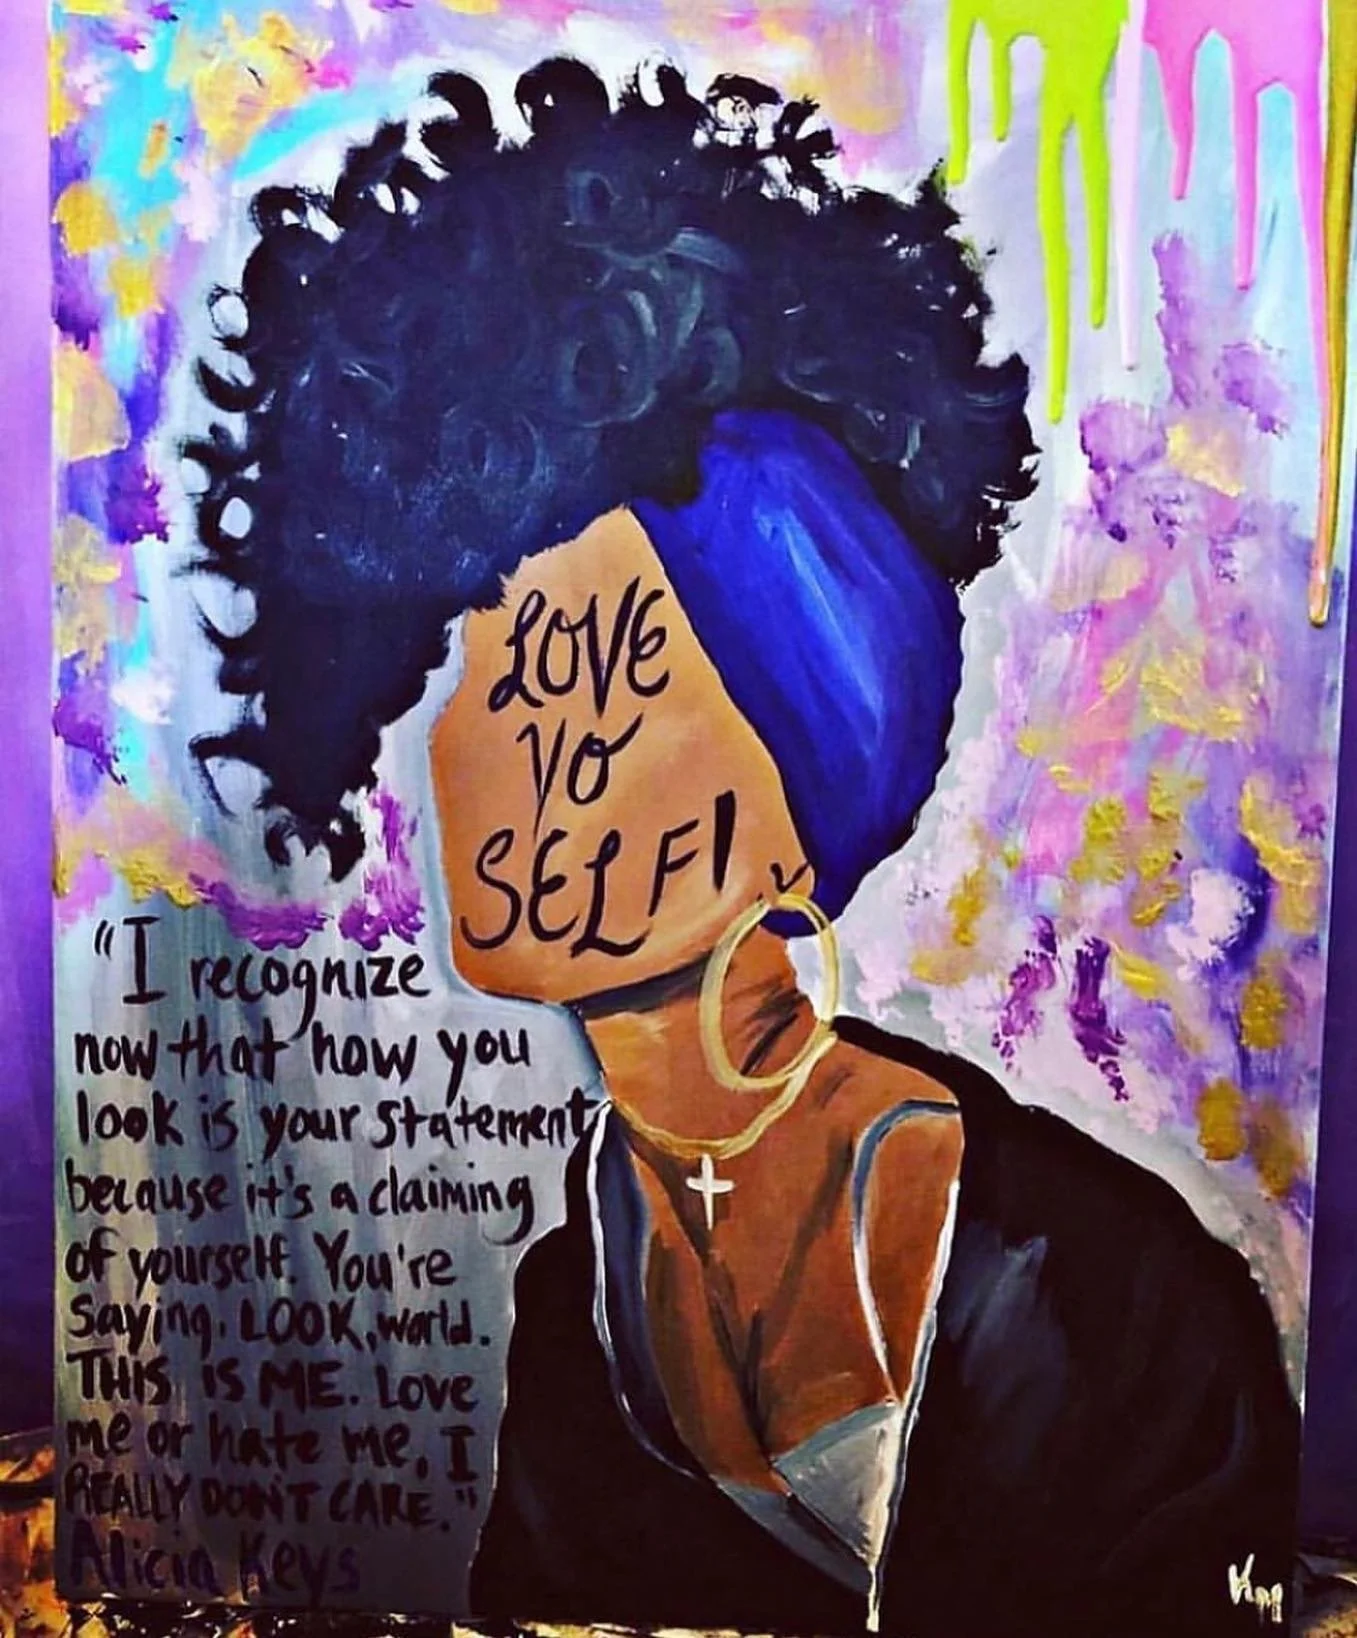 LOVE
YO
SELF!
"I recognize
now that how you
look is your statement
because it's a claiming
of yourself. You're
saying, LOOK, world.
THIS IS ME. Love
me or hate me, I
REALLY DON'T CARE."
Alicia Keys